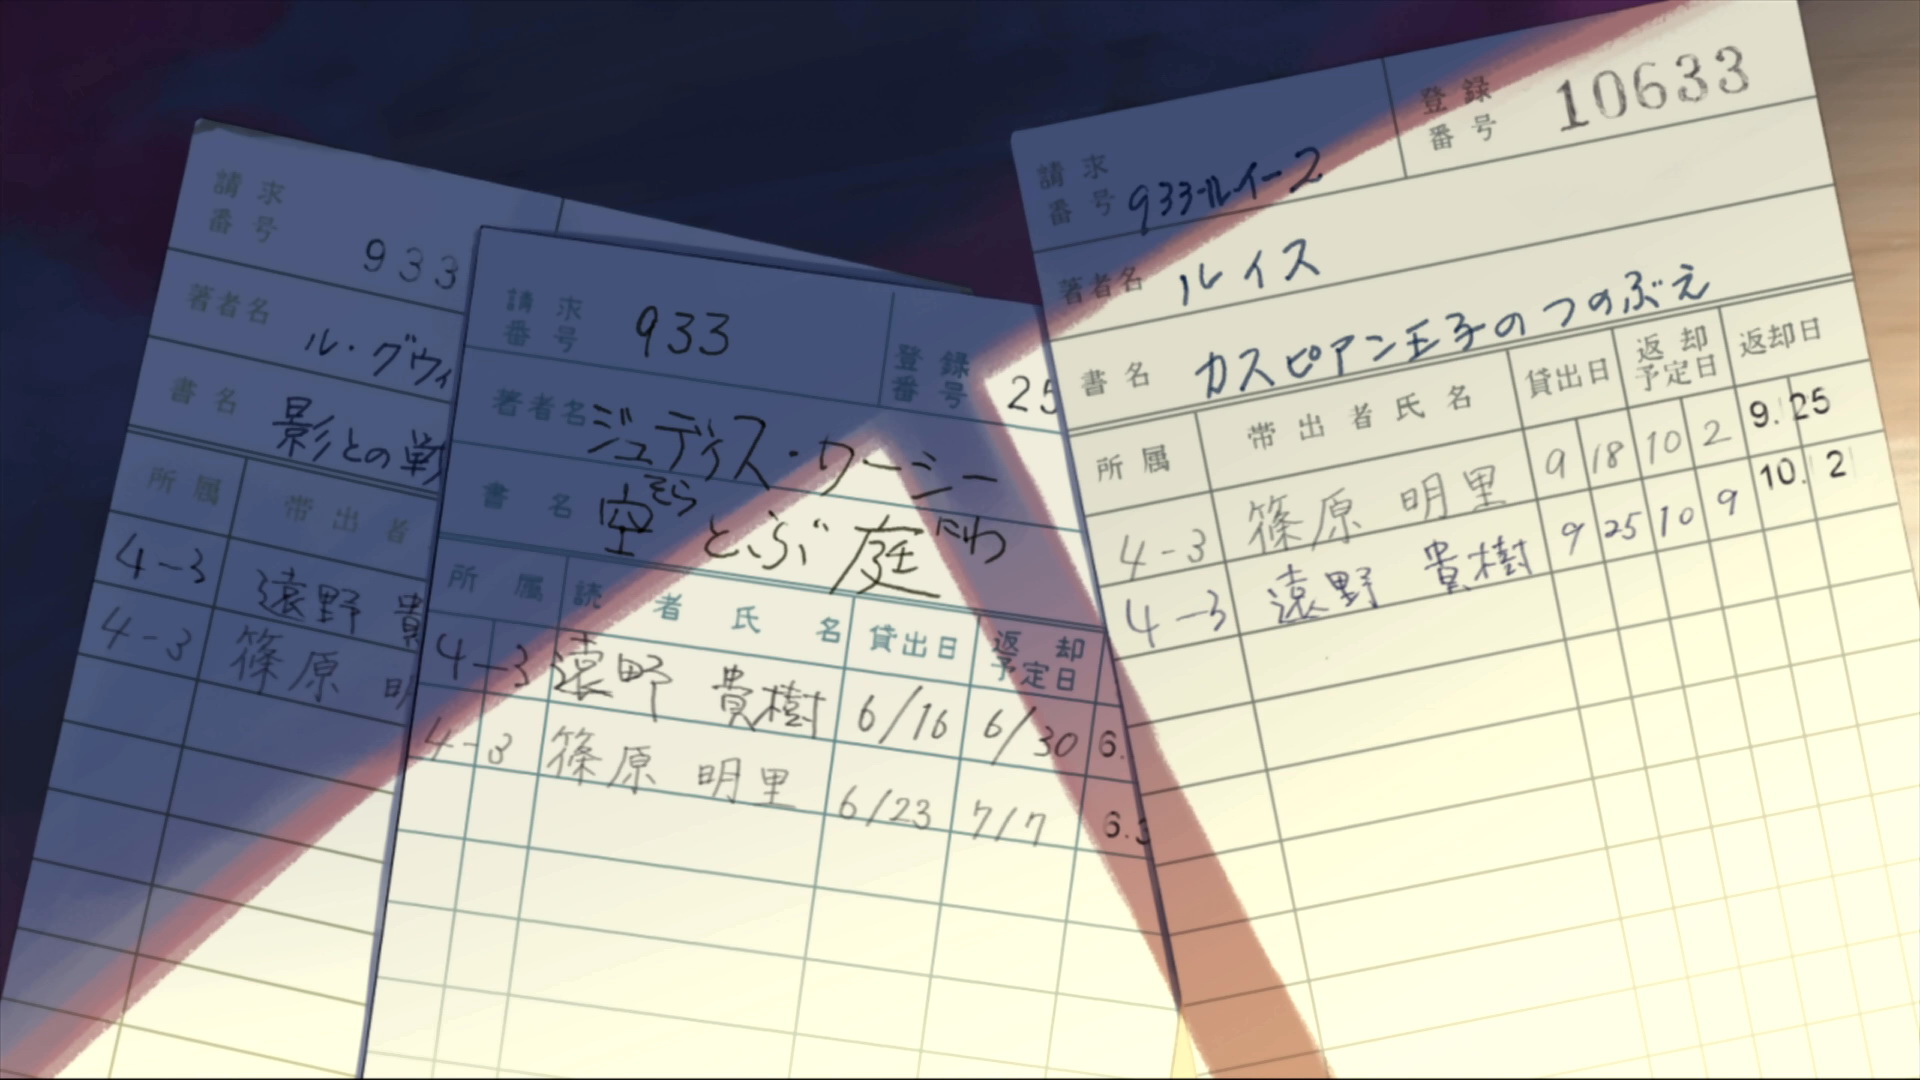 請求番号 933
著者名 ル・グウィ
書名 影との戦
所属 帯出者
4-3 遠野 貴
4-3 篠原 明
請求番号 933
登録番号 25
著者名 ジュディス・ワーシー
書名 空とぶ庭
そら にわ
所属 読者氏名 貸出日 返却予定日
4-3 遠野 貴樹 6/16 6/30 6.
4-3 篠原 明里 6/23 7/7 6.3
請求番号 933-ルイ-2
登録番号 10633
著者名 ルイス
書名 カスピアン王子のつのぶえ
所属 帯出者氏名 貸出日 返却予定日 返却日
4-3 篠原 明里 9 18 10 2 9.25
4-3 遠野 貴樹 9 25 10 9 10. 2